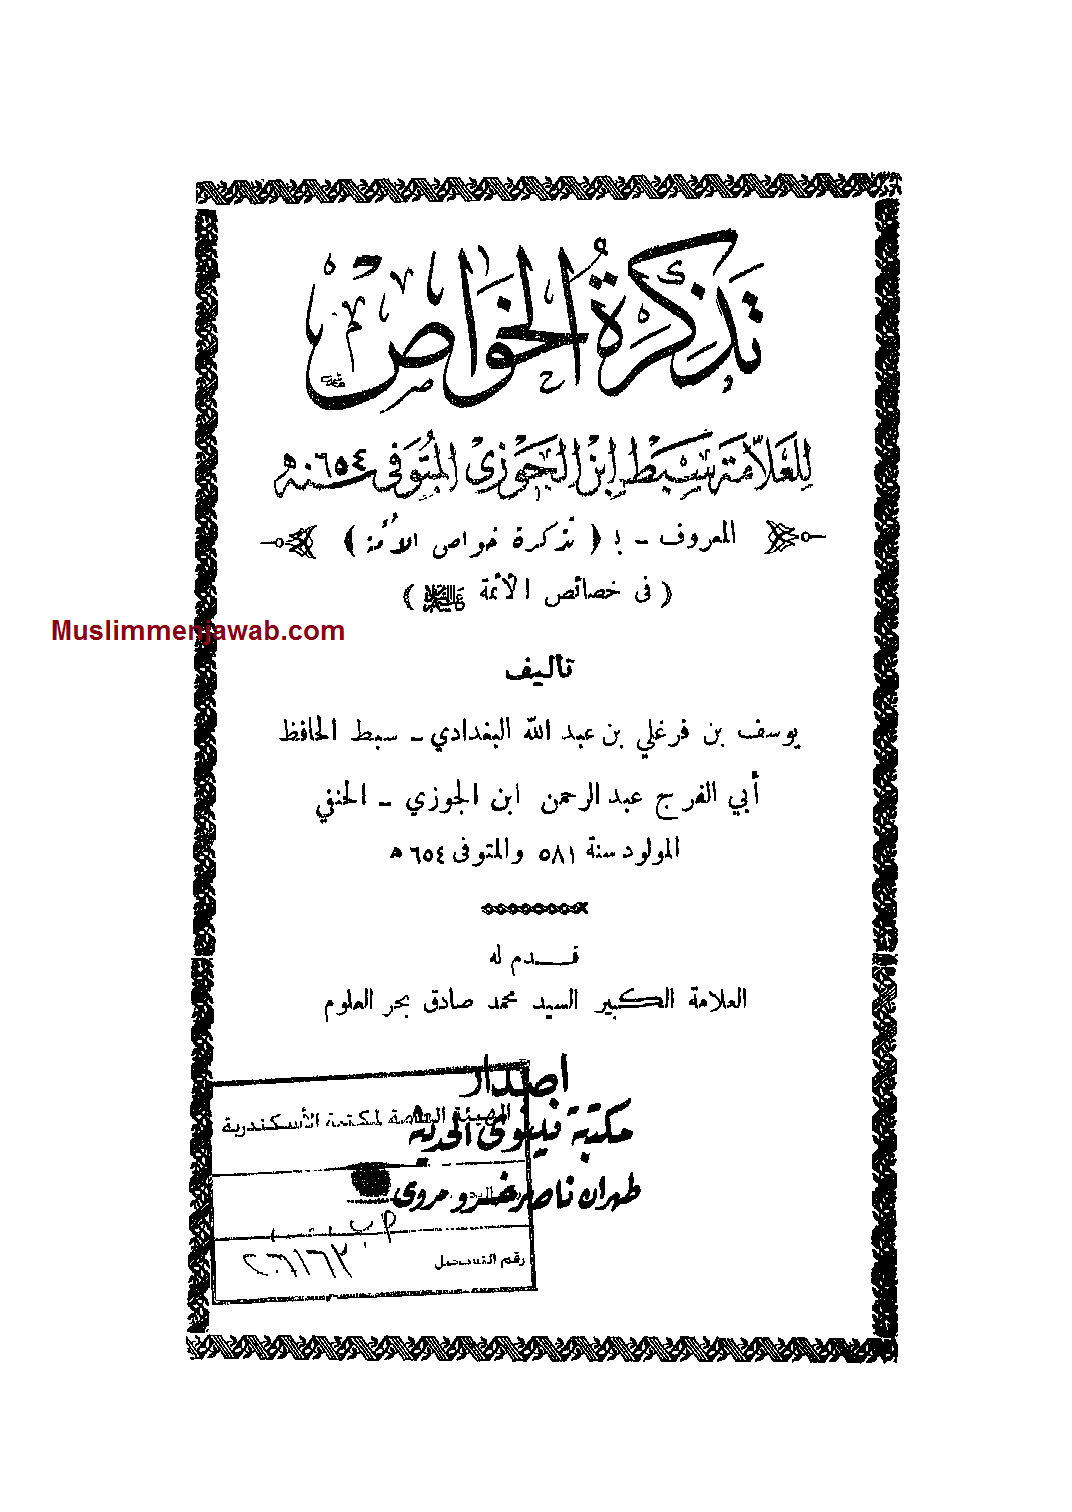 تذكرة الخواص
للعلامة سبط ابن الجوزي المتوفى سنه ٦٥٤ هـ
المعروف ـ بـ ( تذكرة خواص الأئمة )
( في خصائص الأئمة )
Muslimmenjawab.com
تأليف
يوسف بن فرغلي بن عبد الله البغدادي ـ سبط الحافظ
أبي الفرج عبد الرحمن ابن الجوزي ـ الحنفي
المولود سنة ٥٨١ والمتوفى ٦٥٤ هـ
قـدم له
العلامة الكبير السيد محمد صادق بحر العلوم
اصدار
مكتبة نينوى الحديثة
طهران ناصر خسرو مروى
الهيئة العامة لمكتبة الأسكندرية
رقم التسجيل ٢٠٦١٦٣